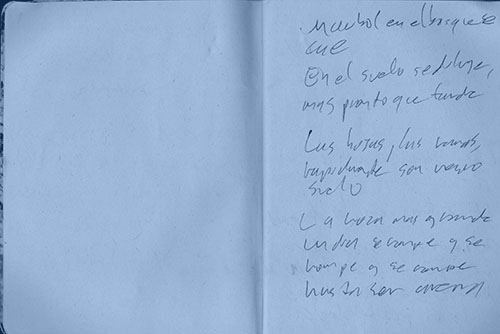 Un arbol en el bosque se
cae
En el suelo se diluye,
mas pronto que tarde
Las hojas, las ramas,
rapidamente son negro
suelo
La hoza mas grande
un dia se rompe y se
rompe y se rompe
hasta ser arena